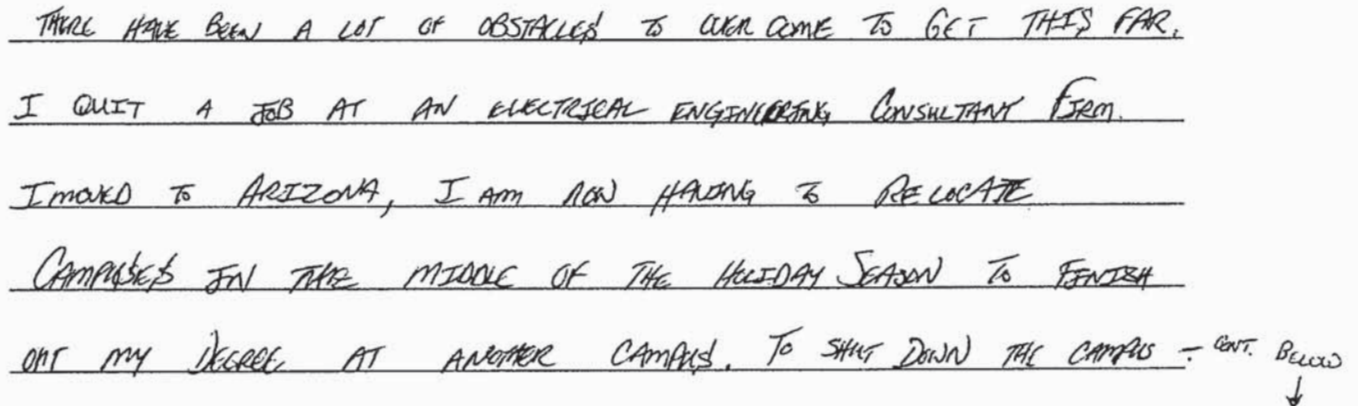 THERE HAVE BEEN A LOT OF OBSTACLES TO OVER COME TO GET THIS FAR.
I QUIT A JOB AT AN ELECTRICAL ENGINEERING CONSULTANT FIRM.
I MOVED TO ARIZONA, I AM NOW HAVING TO RELOCATE
CAMPUSES IN THE MIDDLE OF THE HOLIDAY SEASON TO FINISH
OUT MY DEGREE AT ANOTHER CAMPUS. TO SHUT DOWN THE CAMPUS - CONT. BELOW
↓